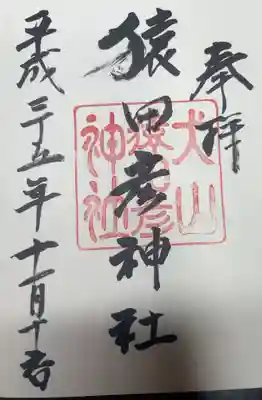 奉拝
猿田彦神社
犬山
猿田彦
神社
平成二十五年十一月十五日